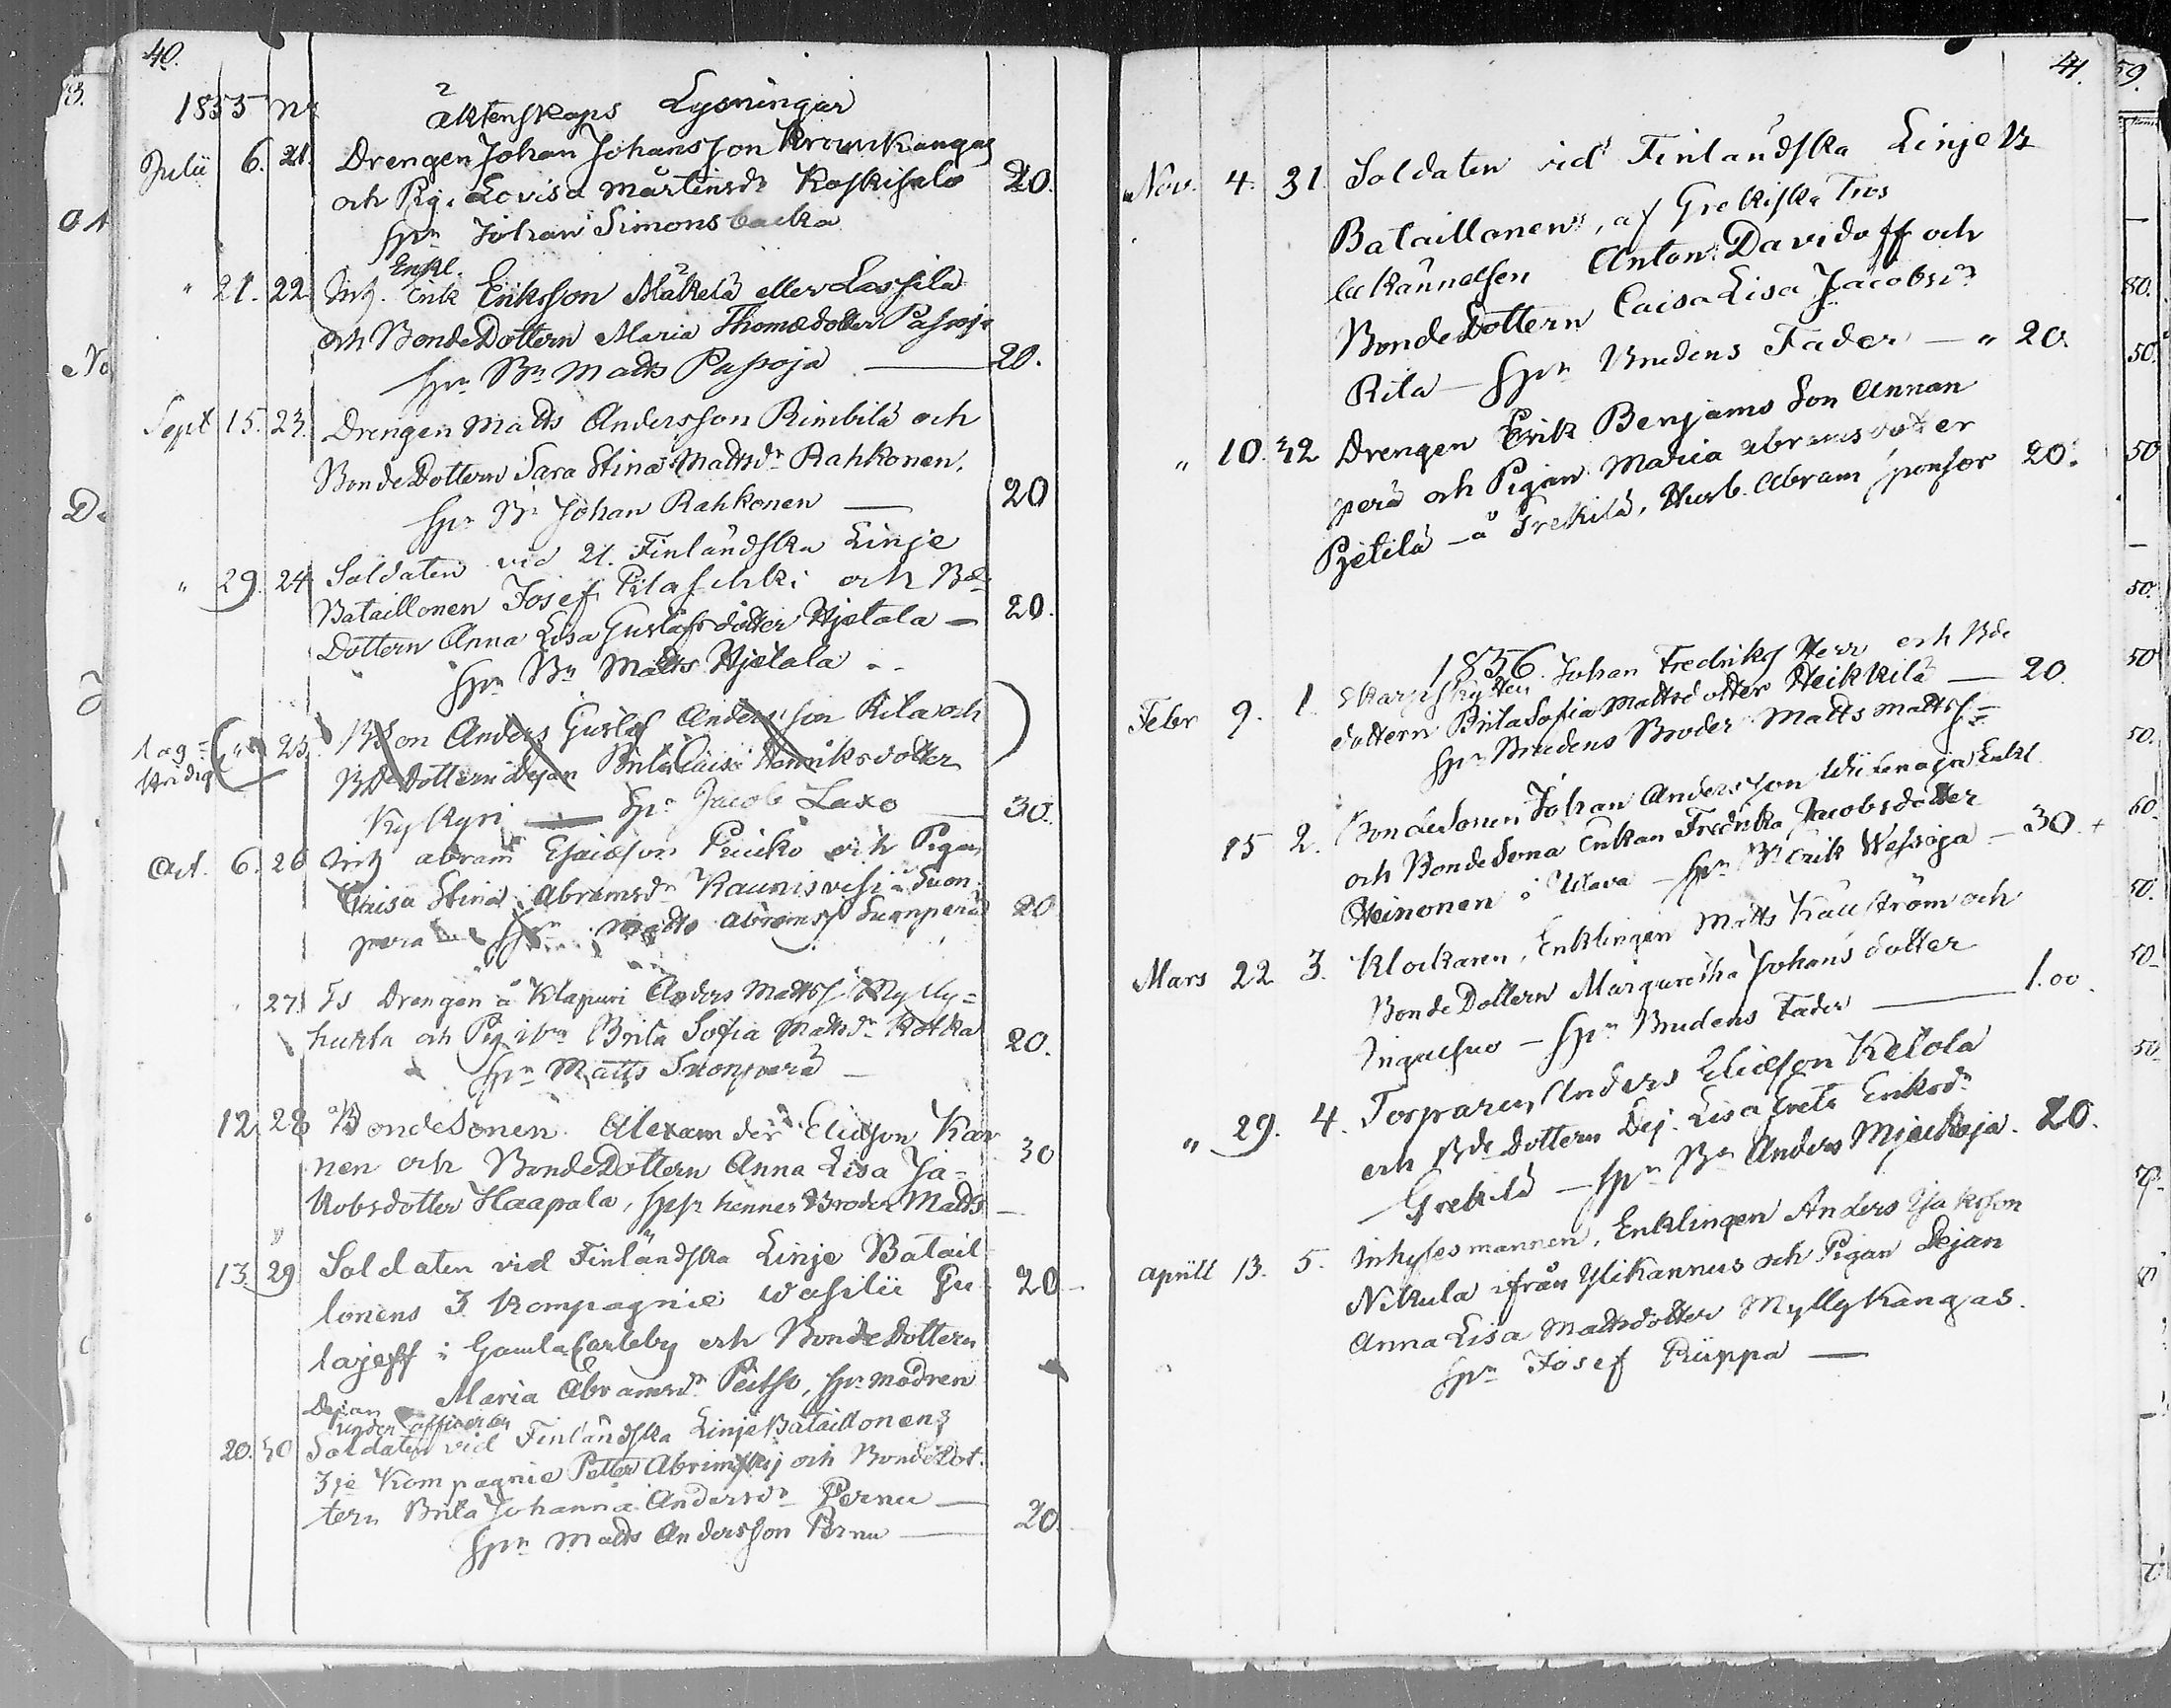 40.
1855 Nr Äktenskaps Lysningar
Julii 6. 21. Drengen Johan Johansson Krouvikangas
och Pig. Lovisa Mårtensdr Koskisalo 20.
Spn Johan Simonsbacka
Enkl.
" 21. 22. Inh. Erik Eriksson Mäkelä eller Lassila
och BondeDottern Maria Thomædotter Pasoja
Spn Bn Matts Pasoja — 20.
Sept 15. 23. Drengen Matts Andersson Rimbilä och
BondeDottern Sara Stina Mattsdr Rahkonen.
Spn Bn Johan Rahkonen — 20
" 29. 24 Soldaten vid 21. Finländska Linje
Bataillonen Josef Pilaschki och Bde
Dottern Anna Lisa Gustafsdotter Hjetala — 20.
Spn Bn Matts Hjetala
25. BSon Anders Gustaf Andersson Rita och
BdeDottern Dejan Brita Caisa Henriksdotter
Kykyri — Spn Jacob Laxo 30.
Oct. 6. 26 Inh Abram Esaiæson Pruiko och Pigan
Caisa Stina Abramsdr Kaunisvesi å Suon
pera — Spn Matts Abramss Suonperä 20
27. Ts Drengen å Klapuri Anders Mattss Mylly=
hukta och Pig. Brita Sofia Mattsdr Kotka 20.
Spn Matts Suonperä —
12. 28 BondeSonen Alexander Eliæson Kar
nen och BondeDottern Anna Lisa Ja= 30
kobsdotter Haapala, Spr hennes Broder Matts —
13. 29. Soldaten vid Finländska Linje Batail
lonens 3 Kompagnie Wasilii Gu 20
lajeff i Gamla Carleby och BondeDottern
Dejan Maria Abramsdr Peitso, Spr modren
Under officeren
20. 30 Soldaten vid Finländska LinjeBataillonens
3je Kompagnie Petter Abrimskij och BondeDot.
tern Brita Johanna Andersdr Pernu —
Spn Matts Andersson Pernu — 20.
41.
Nov. 4. 31. Soldaten vid Finländska Linje
Bataillonen, af Grekiska Tros
bekännelsen Anton Davidoff och
BondeDottern Caisa Lisa Jacobsdr
Rita — Spn Brudens Fader — " 20.
" 10. 32 Drengen Erik Benjams Son Annan
perä och Pigan Maria Abramsdotter
Pjetilä — å Grekilä, Husb. Abram sponsor 20.
1856.
Febr 9. 1. Skarpskytten Johan Fredrik Herr och Bde
dottern Brita Sofia Mattsdotter Heikkilä — 20.
Spn Brudens Broder Matts Mattss
15 2. BondeSonen Johan Andersson Wiirenoja Enkl
och BondeSona Enkan Fredrika Jacobsdotter
Heinonen i Ulava — Spn Bn Erik Wessoja — 30. +
Mars 22 3. Klockaren, Enklingen Matts Kallström och
BondeDottern Margaretha Johansdotter
Ingalsuo — Spn Brudens Fader — 1.00.
" 29. 4. Torparen Anders Eliæson Ketola
och Bde dottern Dej. Lisa Greta Eriksdr
Grekilä — Spn Bn Anders Mjækoja. 20.
Aprill 13. 5. Inhysesmannen, Enklingen Anders Isaksson
Nikula ifrån Ylikannus och Pigan Dejan
Anna Lisa Mattsdotter Myllykangas.
Spn Josef Riippa —